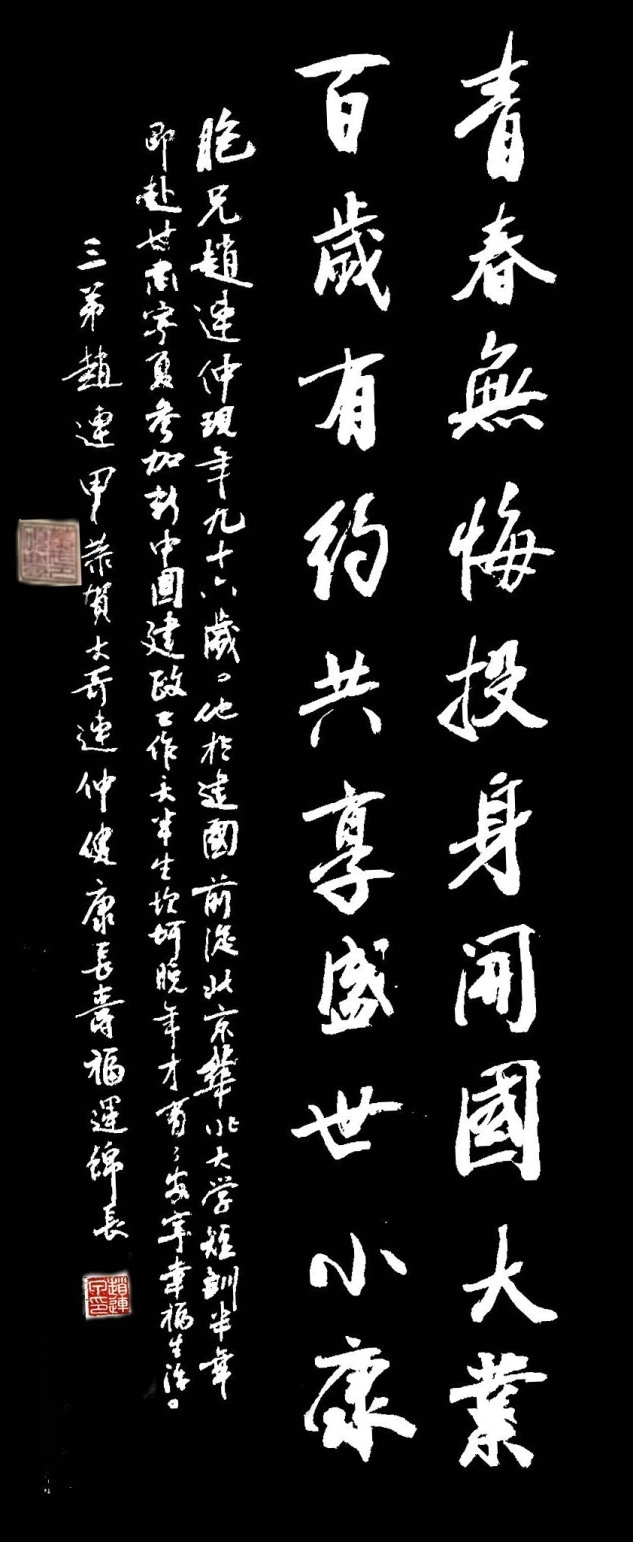 青春無悔投身開國大業
百歲有約共享盛世小康
胞兄趙連仲現年九十六歲。他於建國前從北京華北大学短訓半年
即赴甘肅寧夏參加新中國建政工作大半生坎坷晚年才有了安寧幸福生活。
三弟趙連甲恭賀大哥連仲健康長壽福運錦長
趙連甲印